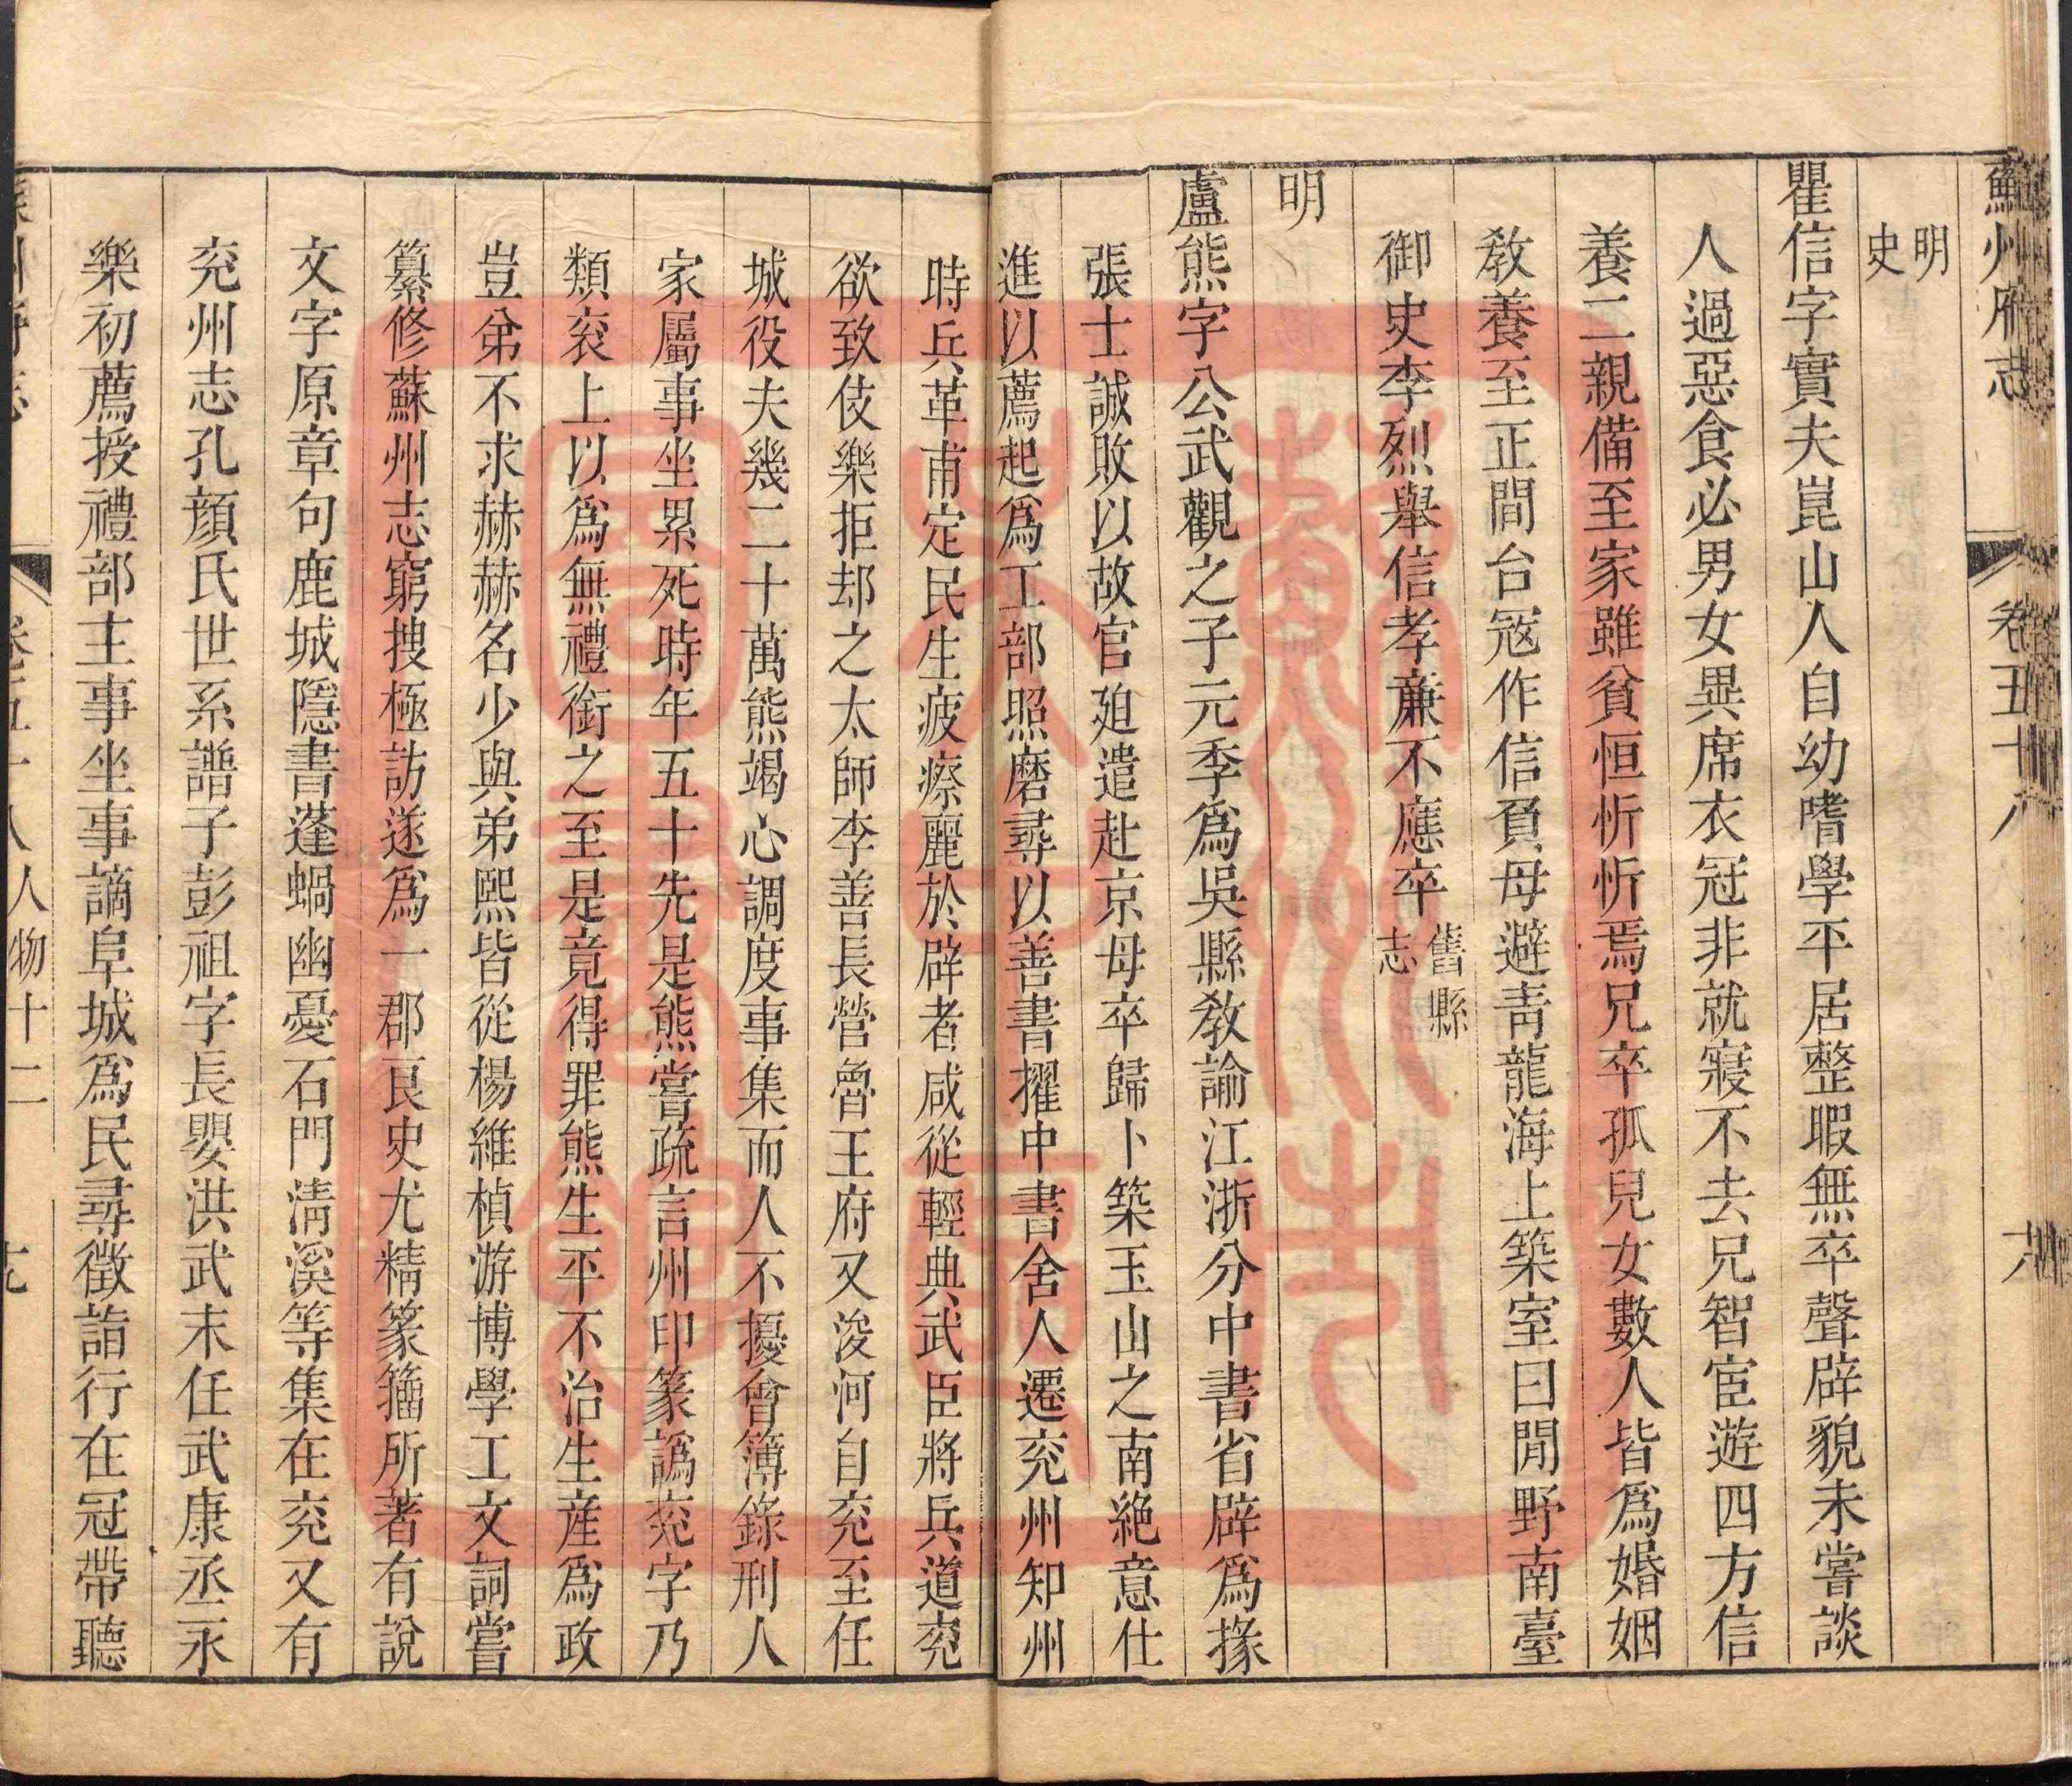 蘇州府志 卷五十八 六
明史
瞿信字實夫崑山人自幼嗜學平居整暇無卒聲辟貌未嘗談
人過惡食必男女異席衣冠非就寢不去兄智宦遊四方信
養二親備至家雖貧恒忻忻焉兄卒孤兒女數人皆爲婚姻
敎養至正間台寇作信負母避靑龍海上築室曰閒野南臺
御史李烈舉信孝廉不應卒舊縣志
明
盧熊字公武觀之子元季爲吳縣敎諭江浙分中書省辟爲掾
張士誠敗以故官廹遣赴京母卒歸卜築玉山之南絶意仕
進以薦起爲工部照磨尋以善書擢中書舍人遷兖州知州
時兵革甫定民生疲瘵麗於辟者咸從輕典武臣將兵道兖
欲致伎樂拒却之太師李善長營魯王府又浚河自兖至任
城役夫幾二十萬熊竭心調度事集而人不擾會簿錄刑人
家屬事坐累死時年五十先是熊嘗疏言州印篆譌兖字乃
類衮上以爲無禮銜之至是竟得罪熊生平不治生産爲政
豈弟不求赫赫名少與弟熙皆從楊維楨游博學工文詞嘗
纂修蘇州志窮搜極訪遂爲一郡良史尤精篆籀所著有說
文字原章句鹿城隱書蓬蝸幽憂石門淸溪等集在兖又有
兖州志孔顔氏世系譜子彭祖字長嬰洪武末任武康丞永
樂初薦授禮部主事坐事謫阜城爲民尋徵詣行在冠帶聽
卷五十八人物十二